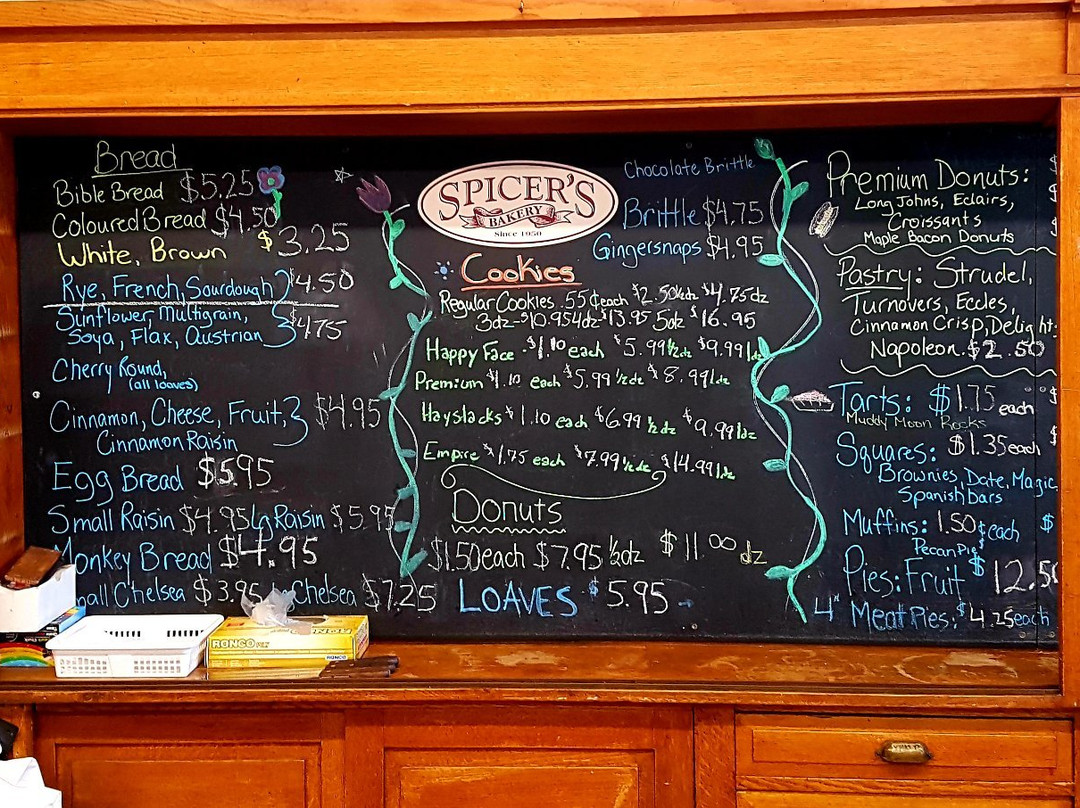 Bread
Bible Bread $5.25
Coloured Bread $4.50
White, Brown $3.25
Rye, French, Sourdough } $4.50
Sunflower, Multigrain,
Soya, Flax, Austrian } $4.75
Cherry Round,
(all loaves)
Cinnamon, Cheese, Fruit, } $4.95
Cinnamon Raisin
Egg Bread $5.95
Small Raisin $4.95 Lg Raisin $5.95
Monkey Bread $4.95
Chelsea $3.95 Chelsea $7.25
SPICER'S
BAKERY
Since 1950
Chocolate Brittle
Brittle $4.75
Gingersnaps $4.95
Cookies
Regular Cookies .55¢each $2.50½dz $4.75dz
3dz-$10.95 4dz-$13.95 5dz $16.95
Happy Face $1.10 each $5.99½dz $9.99 1dz
Premium $1.10 each $5.99 ½dz $8.99 1dz
Haystacks $1.10 each $6.99 ½dz $9.99 1dz
Empire $1.75 each $7.99 ½dz $14.99 1dz
Donuts
$1.50each $7.95 ½dz $11.00 dz
LOAVES $5.95
Premium Donuts:
Long Johns, Eclairs,
Croissants
Maple Bacon Donuts
Pastry: Strudel,
Turnovers, Eccles,
Cinnamon Crisp, Delight
Napoleon $2.50
Tarts: $1.75 each
Muddy Moon Rocks
Squares: $1.35 each
Brownies, Date, Magic,
Spanish bars
Muffins: 1.50¢each
Pecan Pie $
Pies: Fruit $12.50
4" Meat Pies: $4.25each
RONCO
RONCO